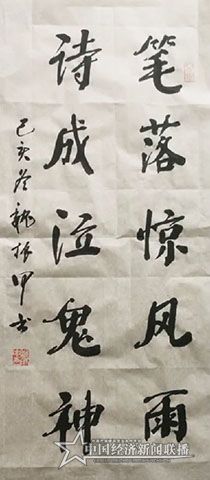 笔落惊风雨
诗成泣鬼神
己亥冬 振甲书
中国经济新闻联播